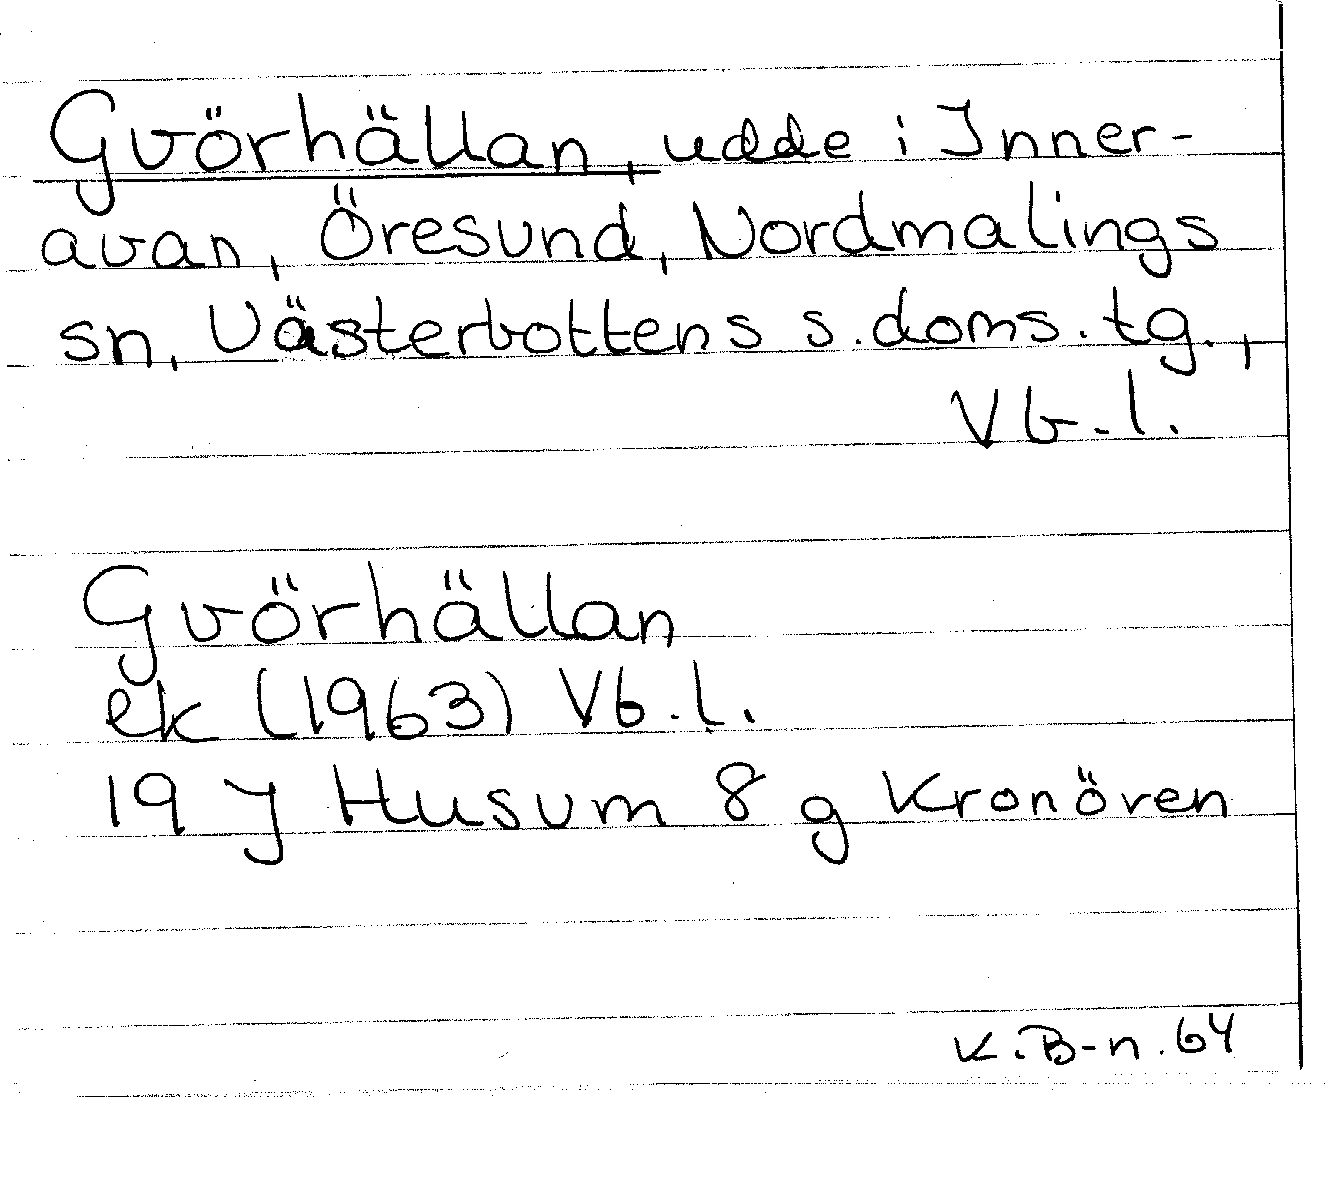 Gvörhällan, udde i Inner-
avan, Öresund, Nordmalings
sn, Västerbottens s.doms.tg.,
Vb.l.
Gvörhällan
ek (1963) Vb.l.
19 J Husum 8 g Kronören
K.B-n.64